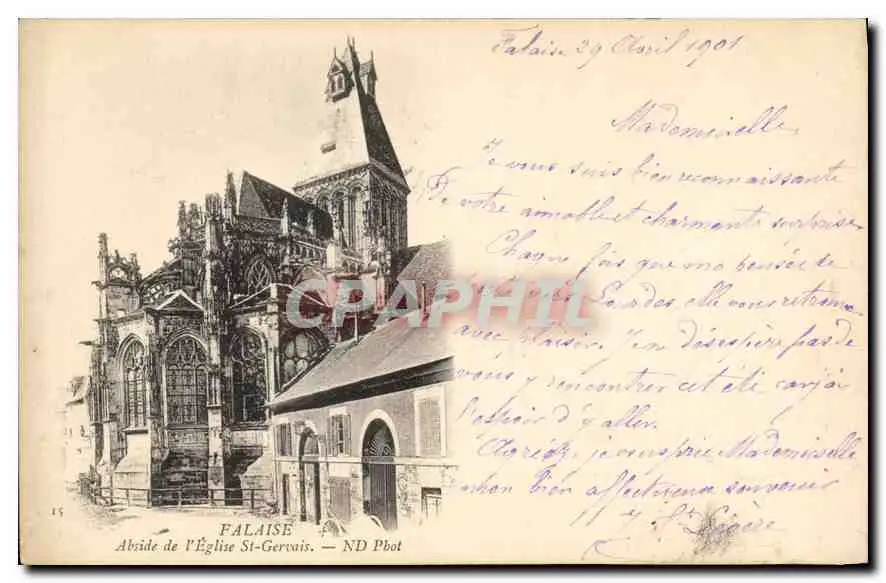 Falaise 29 Avril 1901
Mademoiselle
Je vous suis bien reconnaissante
de votre aimable et charmante surprise.
Chaque fois que ma pensée
Lourdes, elle vous retrouve
avec plaisir. J'en désespère pas de
vous y rencontrer cet été car j'ai
l'espoir d'y aller.
Agréez, je vous prie Mademoiselle
mon bien affectueux souvenir
CAPCARTPHIL
15
FALAISE
Abside de l'Église St-Gervais. — ND Phot